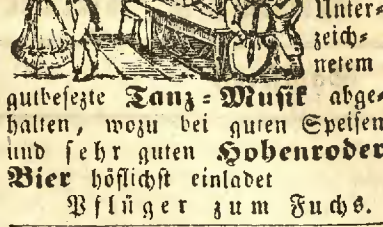 Unter=
zeich=
netem
gutbesezte Tanz=Musik abge=
halten, wozu bei guten Speisen
und sehr guten Hohenroder
Bier höflichst einladet
Pflüger zum Fuchs.